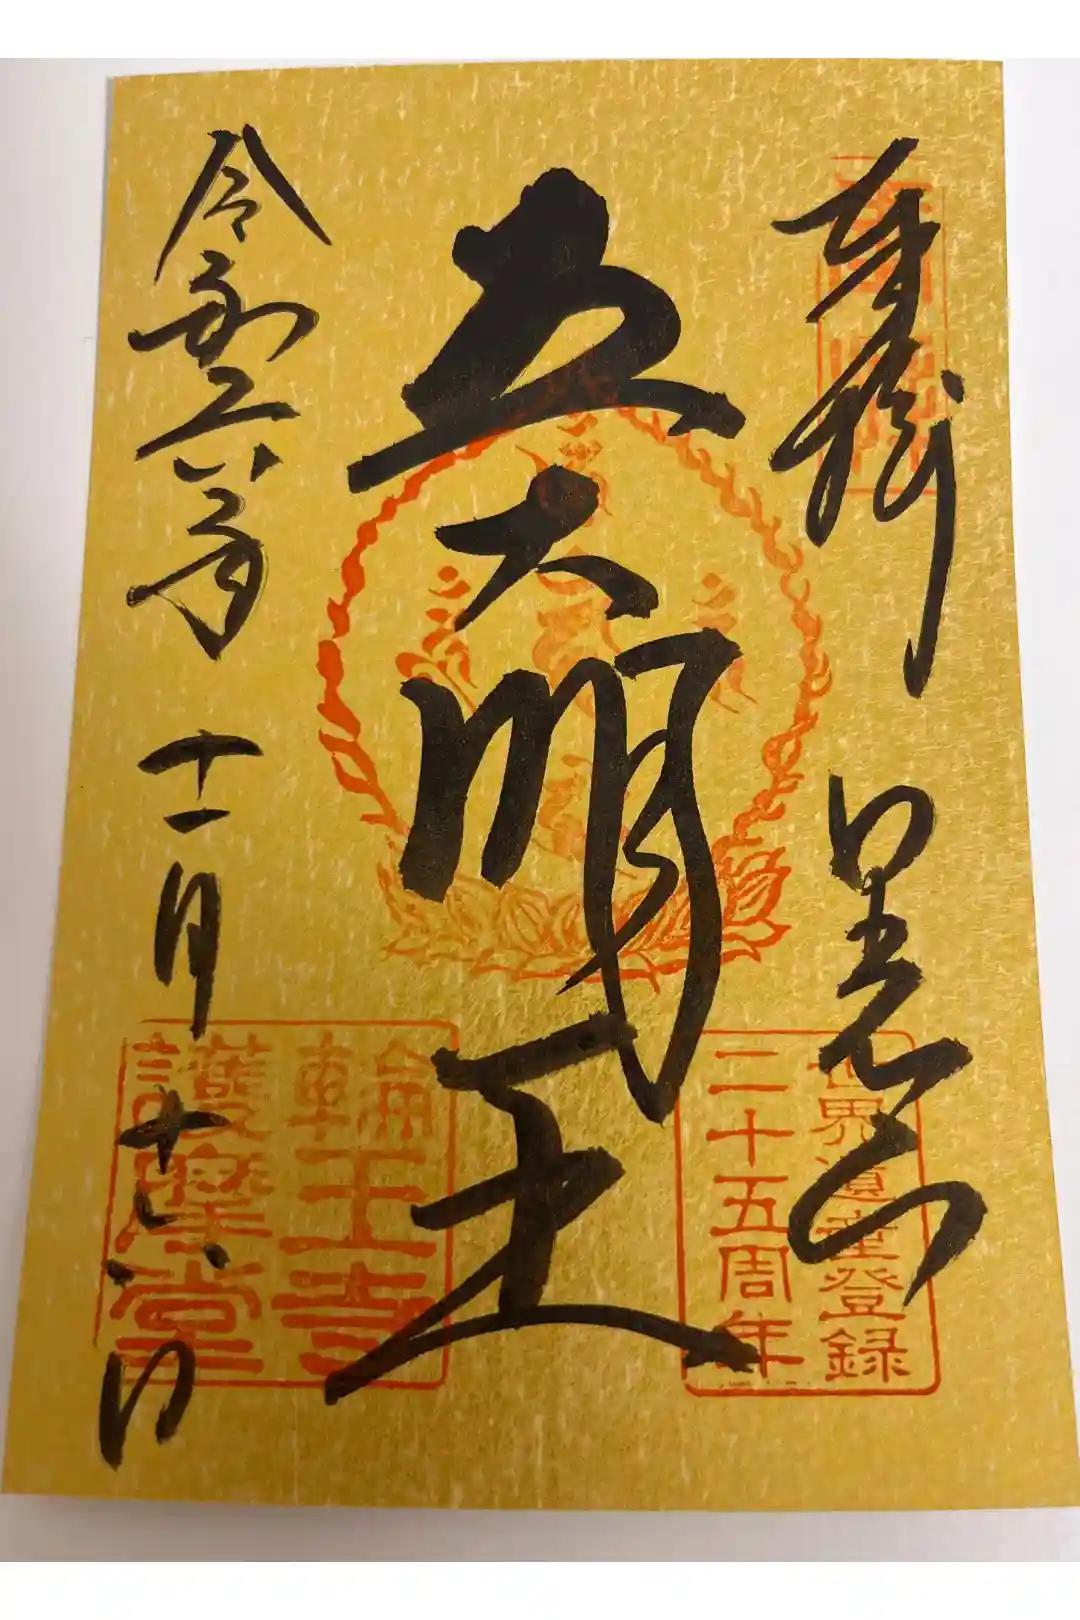 奉拝
日光山
世界遺産登録
二十五周年
五大明王
令和六年
十一月十六日
輪王寺
護摩堂